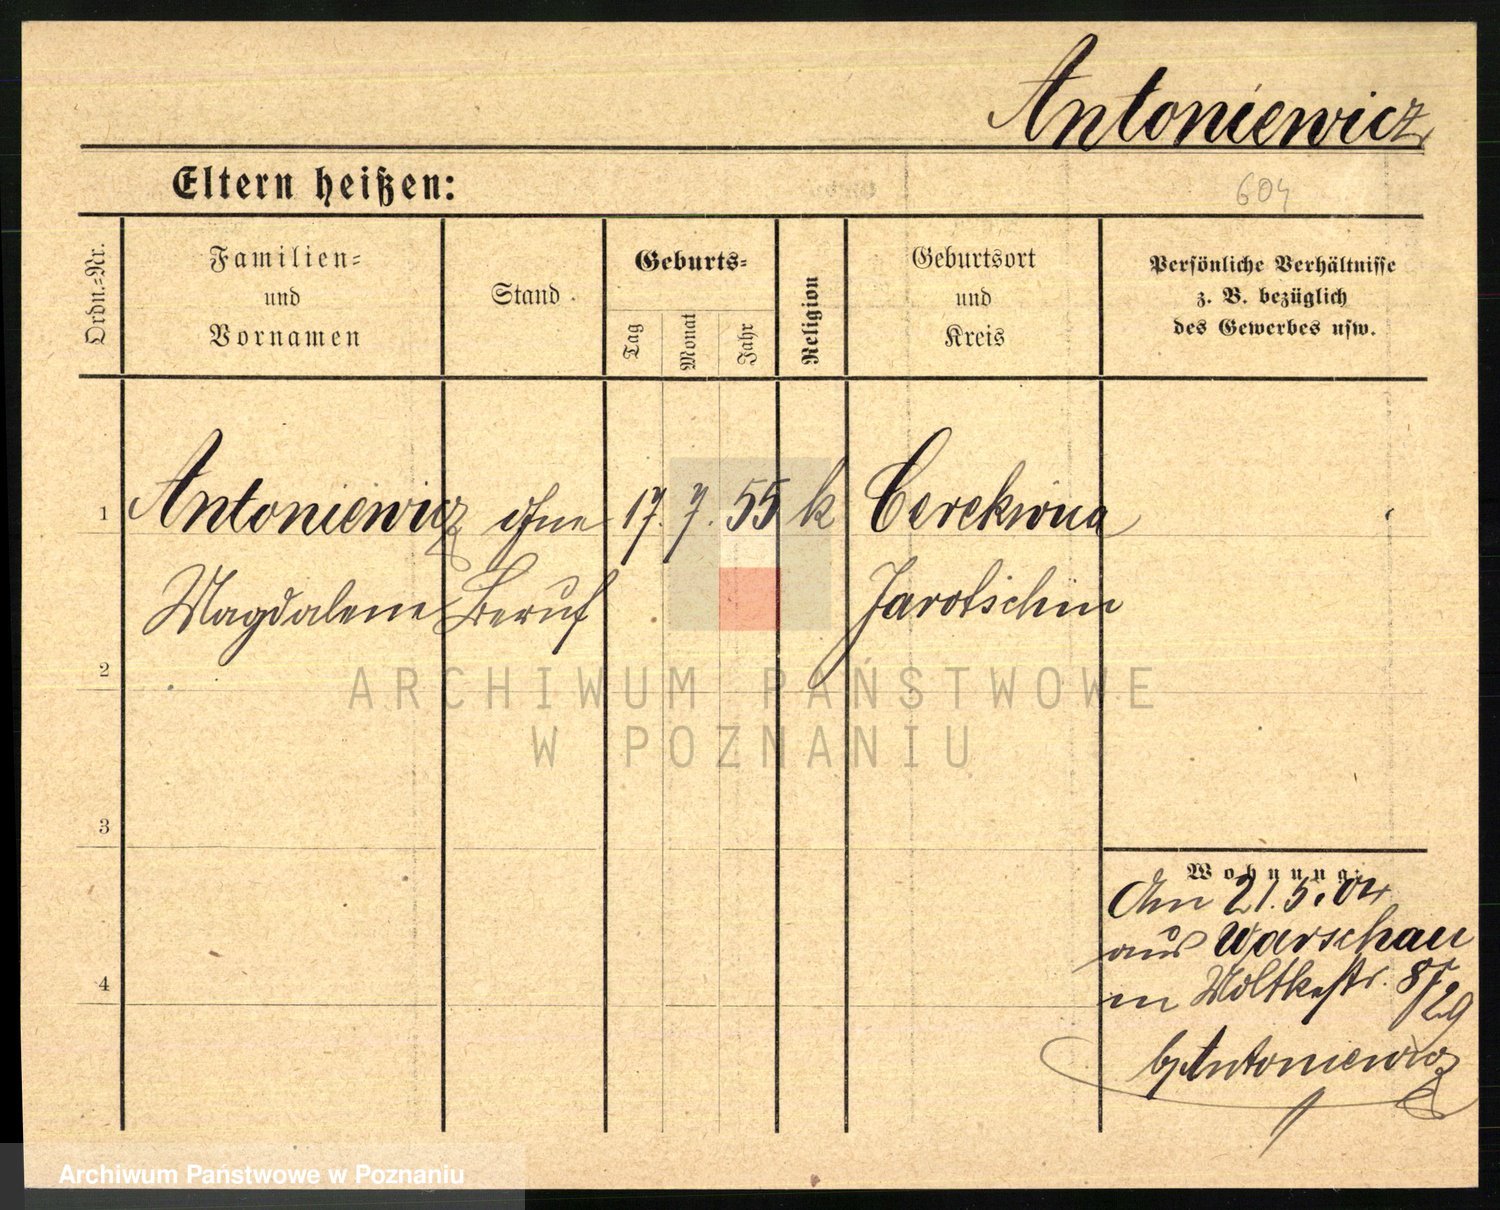 Antoniewicz
Eltern heißen:
604
Ordn.-Nr.
Familien-
und
Vornamen
Stand.
Geburts-
Tag
Monat
Jahr
Religion
Geburtsort
und
Kreis
Persönliche Verhältnisse
z. B. bezüglich
des Gewerbes usw.
1
Antoniewicz ohne 17. 7. 55 k Cerekwica
Magdalene Beruf Jarotschin
2
ARCHIWUM PAŃSTWOWE
W POZNANIU
3
Wohnung:
Am 21.5.04
aus Warschau
in Moltkestr. 8/29
b/Antoniewicz
4
Archiwum Państwowe w Poznaniu